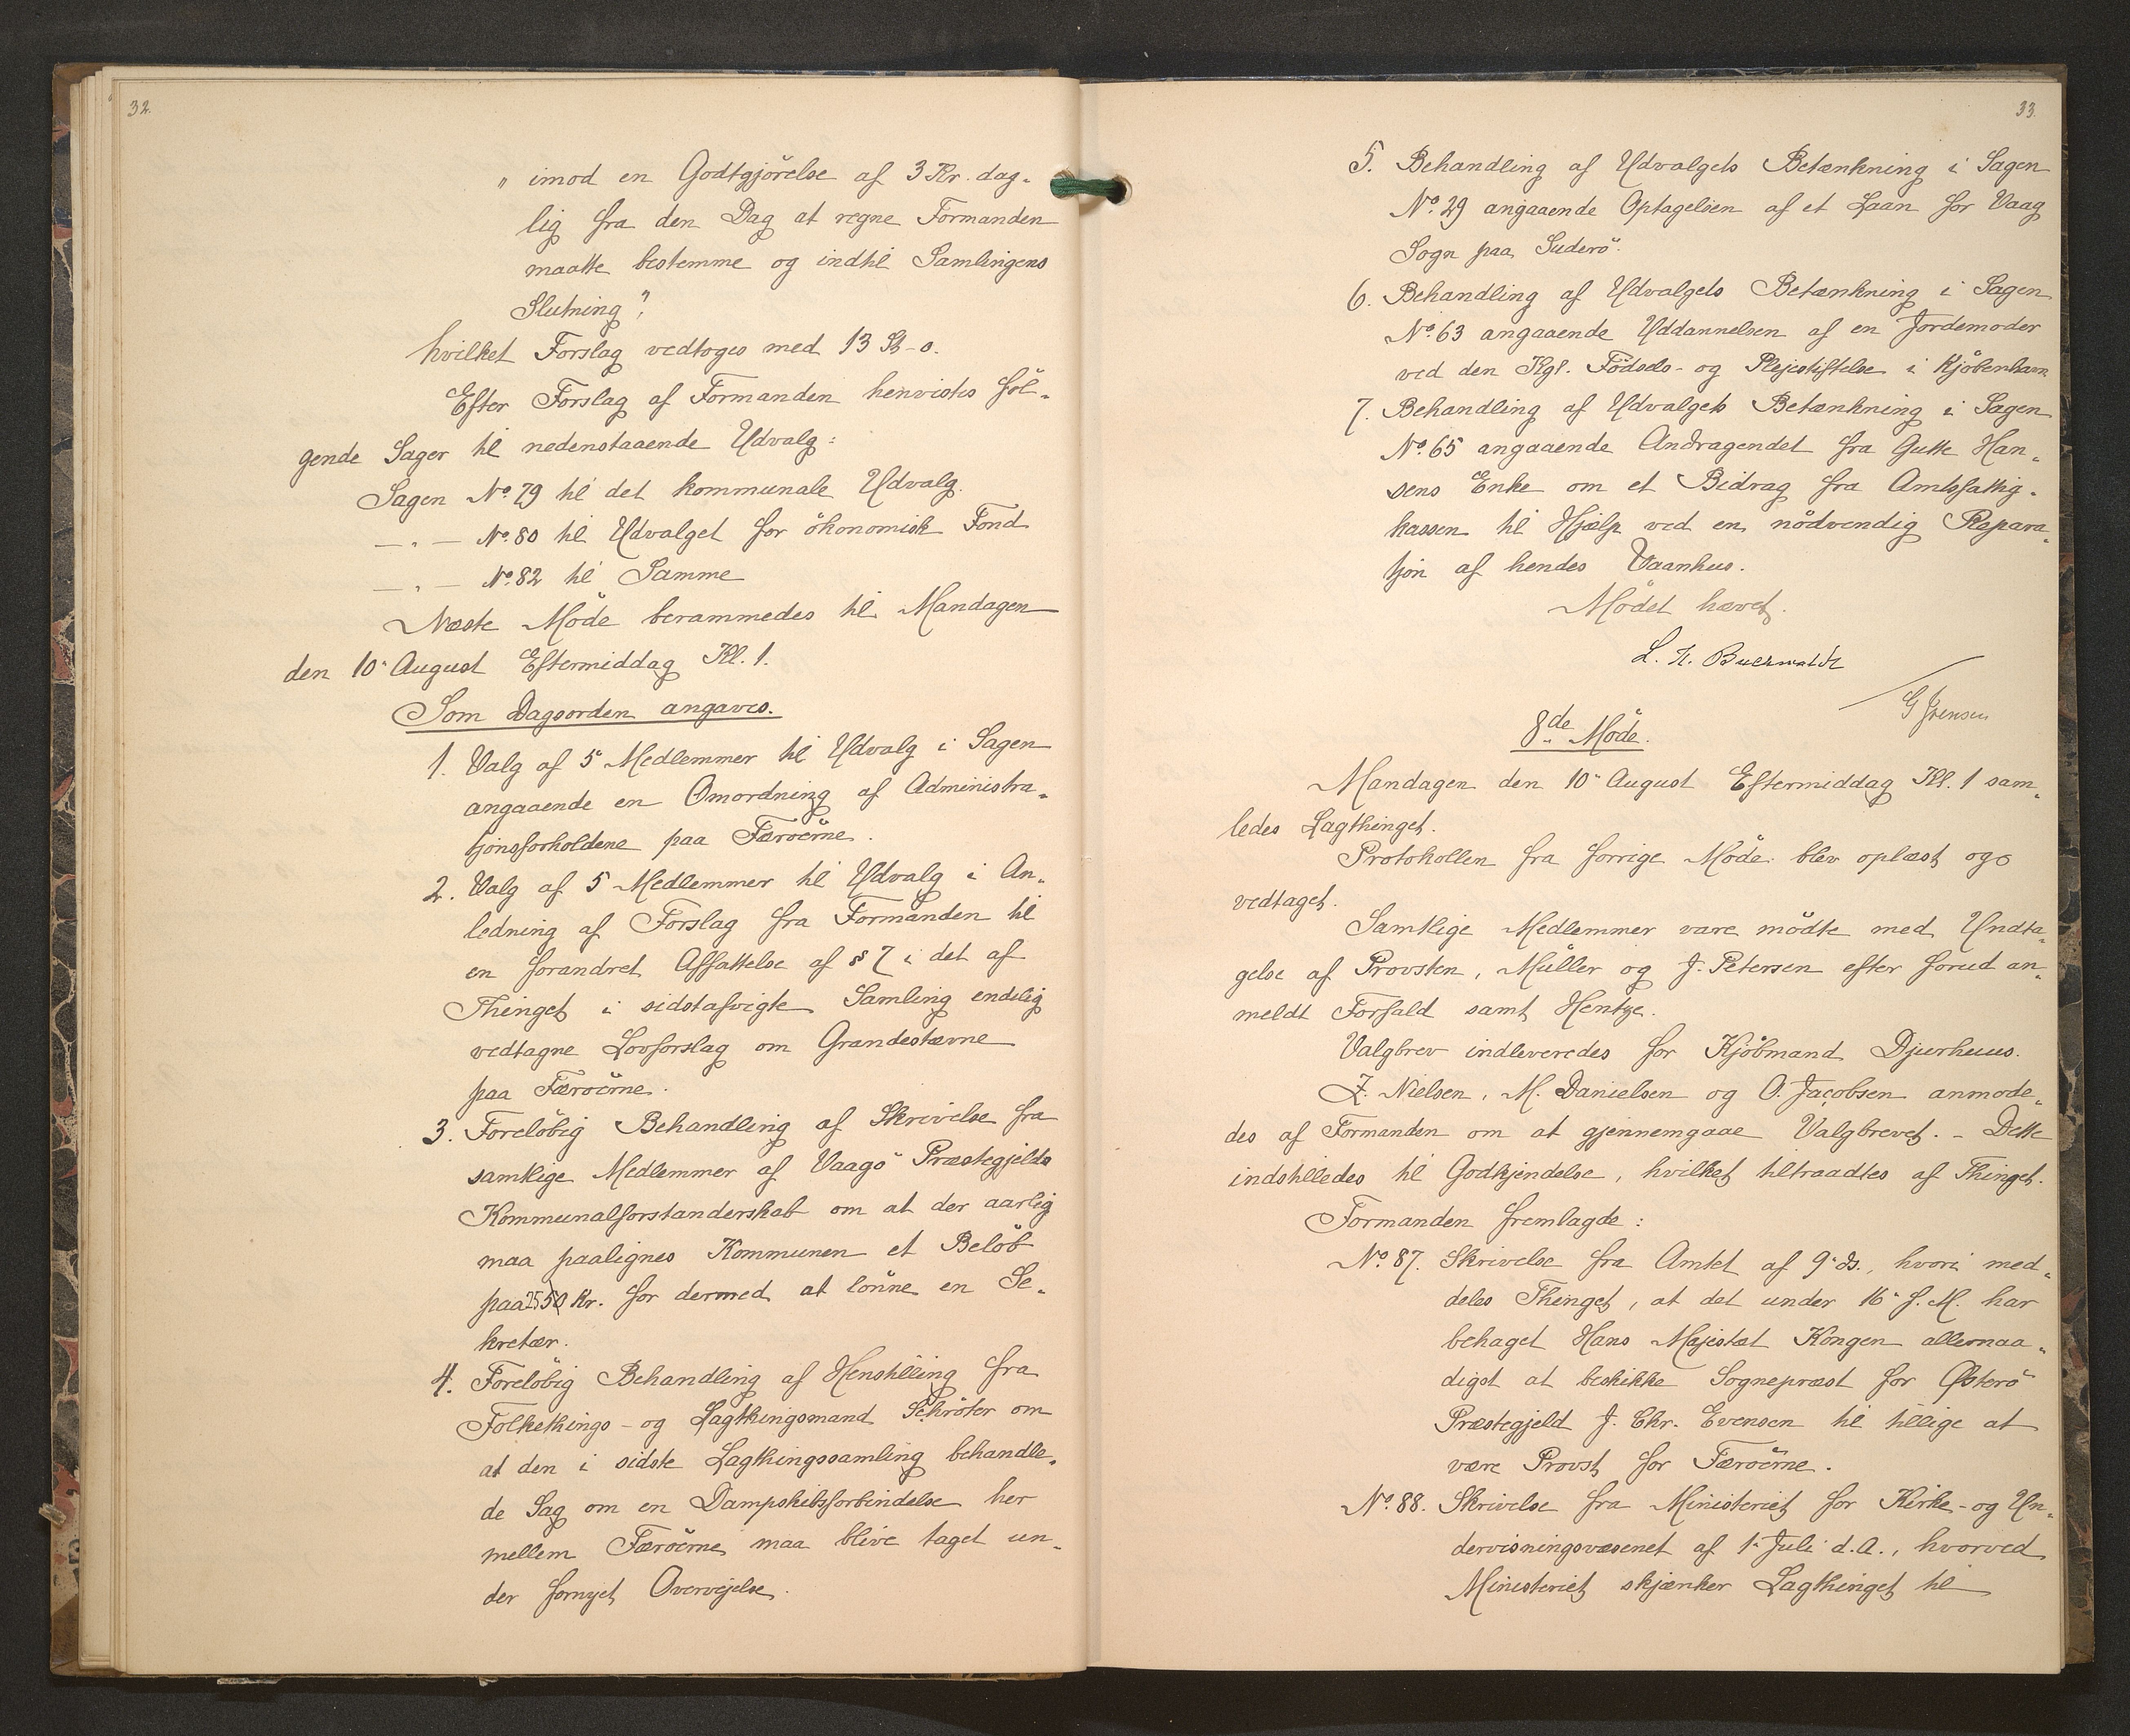 32.
" imod en Godtgjörelse af 3 Kr. dag-
lig fra den Dag at regne Formanden
maatte bestemme og indtil Samlingens
Slutning",
hvilket Forslag vedtoges med 13 St - 0.
Efter Forslag af Formanden henvistes föl-
gende Sager til nedenstaaende Udvalg:
Sagen No. 79 til det kommunale Udvalg.
— " — No. 80 til Udvalget for ökonomisk Fond
— " — No. 82 til Samme
Næste Möde berammedes til Mandagen
den 10" August Eftermiddag Kl. 1.
Som Dagsorden angaves.
1. Valg af 5 Medlemmer til Udvalg i Sagen
angaaende en Omordning af Administra-
tjonsforholdene paa Færöerne.
2. Valg af 5 Medlemmer til Udvalg i An-
ledning af Forslag fra Formanden til
en forandret Affattelse af § 7 i det af
Thinget i sidstafvigte Samling endelig
vedtagne Lovforslag om Grandestævne
paa Færöerne.
3. Foreløbig Behandling af Skrivelse fra
samtlige Medlemmer af Vaagö Præstegjelds
Kommunalforstanderskab om at der aarlig
maa paalignes Kommunen et Belöb
paa 25 50 Kr. for dermed at lönne en Se-
kretær.
4. Forelöbig Behandling af Henstilling fra
Folkethings- og Lagthingsmand Schröter om
at den i sidste Lagthingssamling behandle-
de Sag om en Dampskibsforbindelse her
mellem Færöerne maa blive taget un-
der fornyet Overvejelse.
33.
5. Behandling af Udvalgets Betænkning i Sagen
No. 29 angaaende Optagelsen af et Laan for Vaag
Sogn paa Suderö.
6. Behandling af Udvalgets Betænkning i Sagen
No. 63 angaaende Uddannelsen af en Jordemoder
ved den Kgl. Födsels- og Plejestiftelse i Kjöbenhavn
7. Behandling af Udvalgets Betænkning i Sagen
No. 65 angaaende Andragendet fra Gutte Han-
sens Enke om et Bidrag fra Amtsfattig-
kassen til Hjælp ved en nödvendig Repara-
tjon af hendes Vaanhus.
Mödet hævet.
L. H. Buchwaldt
G Jensen
8de Möde.
Mandagen den 10" August Eftermiddag Kl. 1 sam-
ledes Lagthinget.
Protokollen fra forrige Möde blev oplæst og
vedtaget.
Samtlige Medlemmer vare mödte med Undta-
gelse af Provsten, Müller og J. Petersen efter forud an-
meldt Forfald samt Hentze.
Valgbrev indleveredes for Kjöbmand Djurhuus.
Z. Nielsen, M. Danielsen og O. Jacobsen anmode-
des af Formanden om at gjennemgaae Valgbrevet. - Dette
indstilledes til Godkjendelse, hvilket tiltraadtes af Thinget.
Formanden fremlagde:
No. 87. Skrivelse fra Amtet af 9" ds., hvori med-
deles Thinget, at det under 16" f. M. har
behaget Hans Majestæt Kongen allernaa-
digst at beskikke Sognepræst for Østerö
Præstegjeld J. Chr. Evensen til tillige at
være Provst for Færöerne.
No. 88. Skrivelse fra Ministeriet for Kirke- og Un-
dervisningsvæsenet af 1" Juli d. A., hvorved
Ministeriet skjænker Lagthinget til